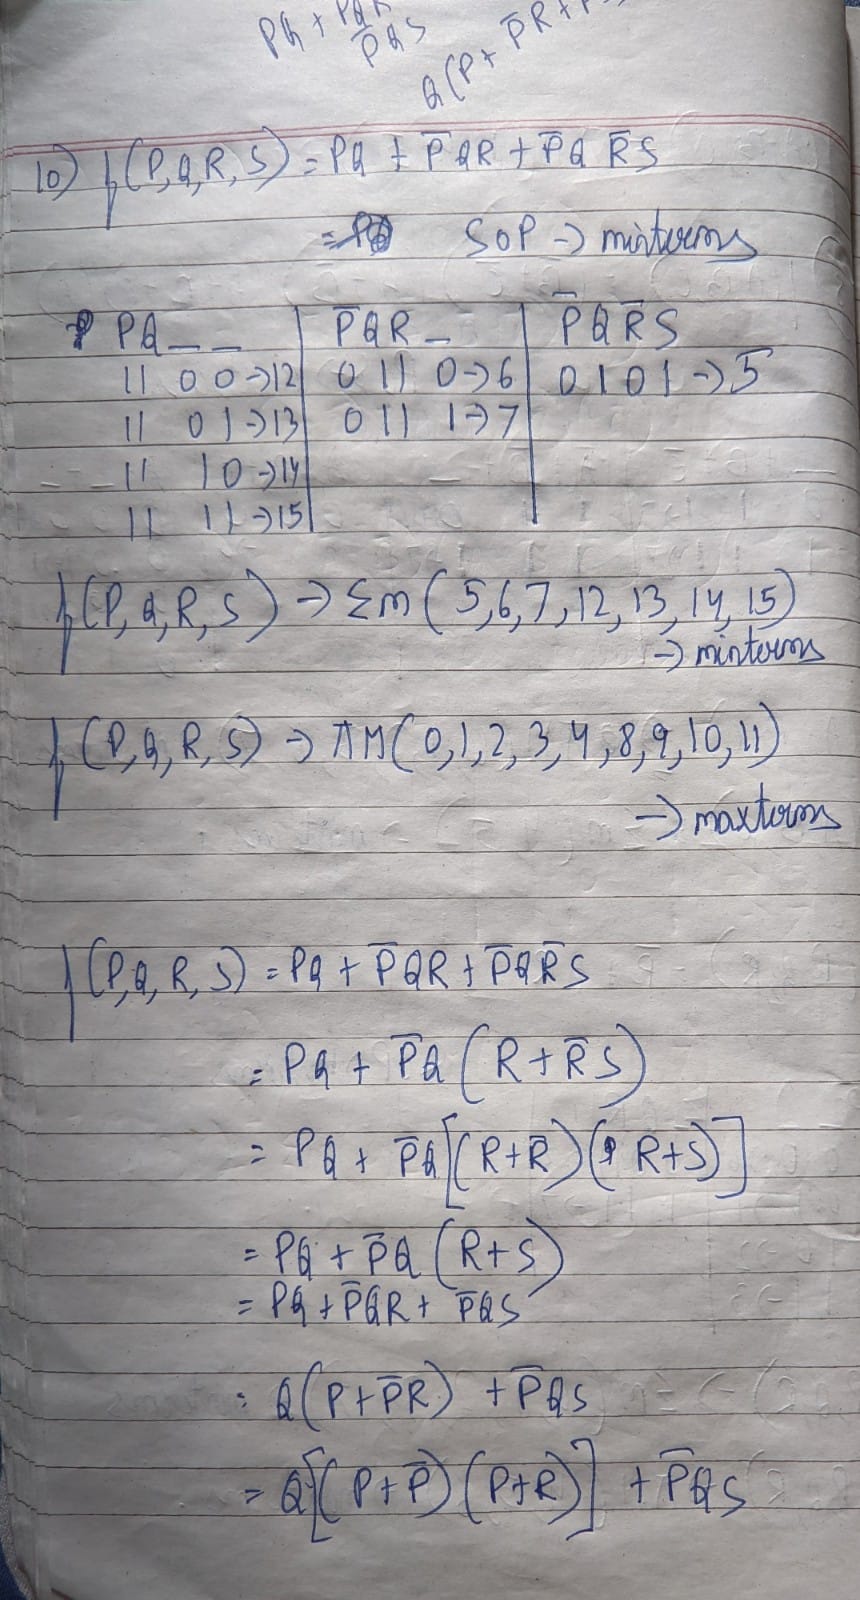 PQ + PQR
P̅QS
Q(P+ P̅R+
10) f(P,Q,R,S) = PQ + P̅QR + P̅Q R̅S
= PQ SOP -> minterms
PQ_ _ | P̅QR_ | P̅QR̅S
11 0 0->12 | 0 11 0->6 | 0 1 0 1 ->5
11 0 1->13 | 0 11 1->7
11 10->14
11 11->15
f(P,Q,R,S) -> Σm(5,6,7,12,13,14,15)
-> minterms
f(P,Q,R,S) -> πM(0,1,2,3,4,8,9,10,11)
-> maxterms
f(P,Q,R,S) = PQ + P̅QR + P̅QR̅S
= PQ + P̅Q(R+R̅S)
= PQ + P̅Q[(R+R̅)(R+S)]
= PQ + P̅Q(R+S)
= PQ + P̅QR + P̅QS
= Q(P+P̅R) + P̅QS
= Q[(P+P̅)(P+R)] + P̅QS